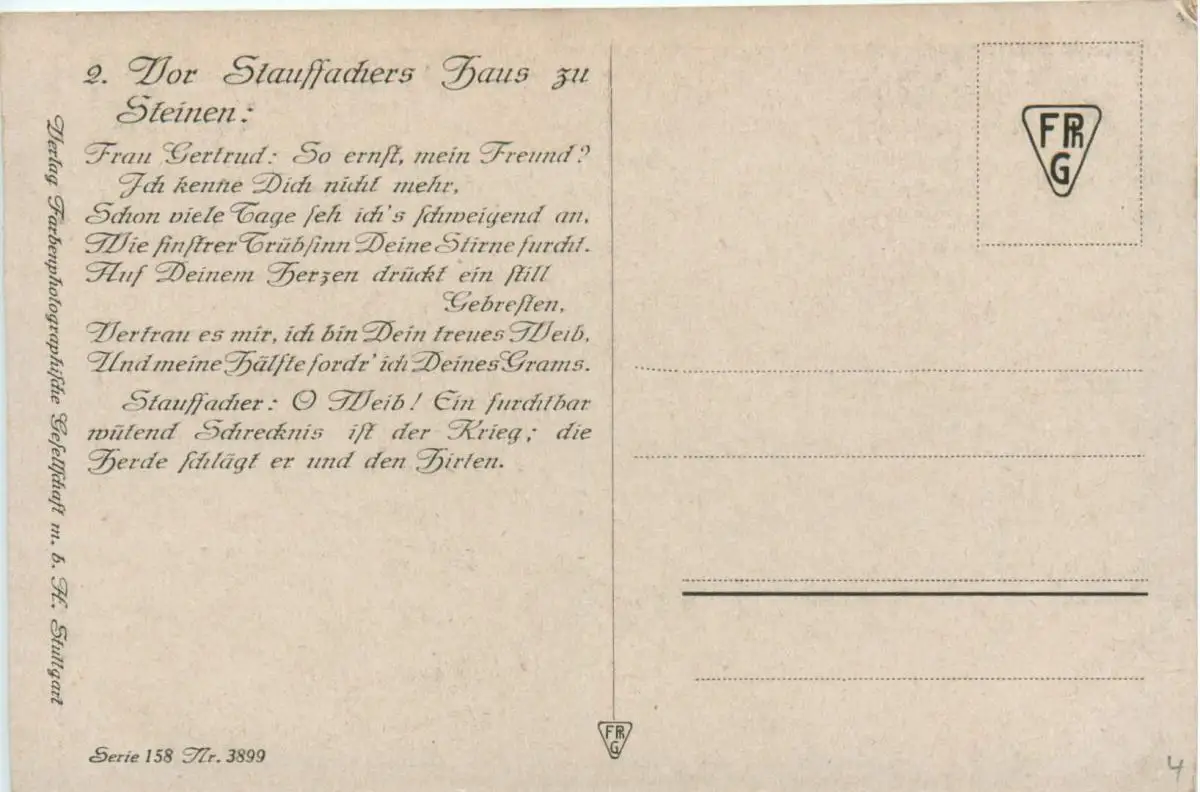 2. Vor Stauffachers Haus zu
Steinen:
Frau Gertrud: So ernſt, mein Freund?
Ich kenne Dich nicht mehr,
Schon viele Tage ſeh ich's ſchweigend an,
Wie finſtrer Trübſinn Deine Stirne furcht.
Auf Deinem Herzen drückt ein ſtill
Gebreſten,
Vertrau es mir, ich bin Dein treues Weib,
Und meine Hälfte fordr' ich Deines Grams.
Stauffacher: O Weib! Ein furchtbar
wütend Schrecknis iſt der Krieg; die
Herde ſchlägt er und den Hirten.
Verlag Farbenphotographiſche Geſellſchaft m. b. H. Stuttgart
Serie 158 Nr. 3899
F Ph
G
F Ph
G
4